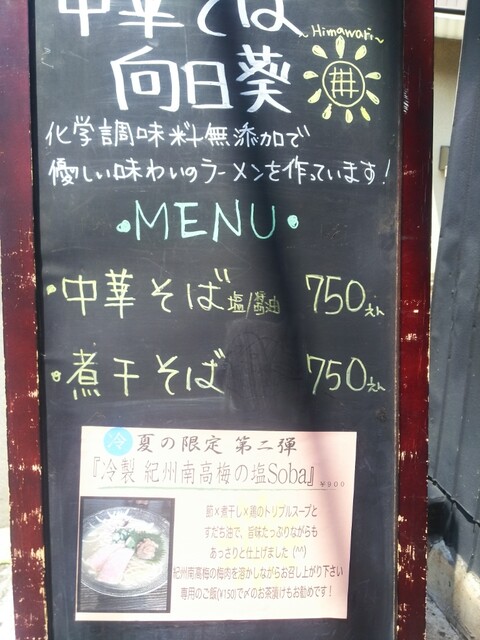 中華そば
~Himawari~
向日葵
化学調味料無添加で
優しい味わいのラーメンを作っています!
・MENU・
・中華そば 塩/醤油 750えん
・煮干そば 750えん
冷 夏の限定 第二弾
『冷製 紀州南高梅の塩Soba』 ¥900
節×煮干し×鶏のトリプルスープと
すだち油で、旨味たっぷりながらも
あっさりと仕上げました(^^)
紀州南高梅の梅肉を溶かしながらお召し上がり下さい
専用のご飯(¥150)で〆のお茶漬けもお勧めです!